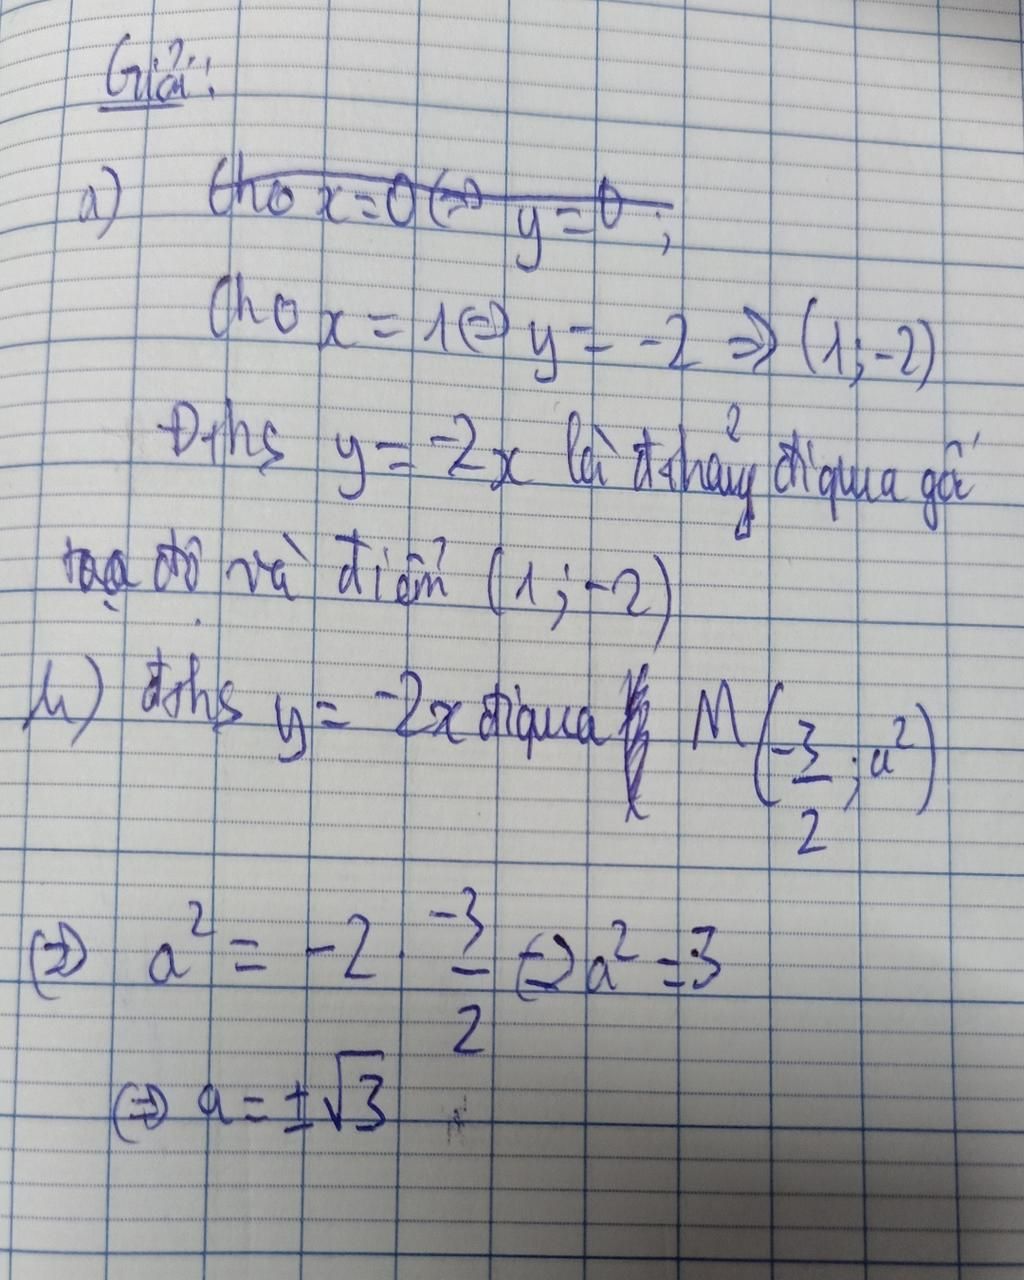 Giải:
a) Cho x=0 ⇔ y=0 ;
Cho x = 1 ⇔ y = -2 ⇒ (1;-2)
Đths y = -2x là đthẳng đi qua gốc
toạ độ và điểm (1;-2)
b) đths y = -2x đi qua M (-3/2 ; a²)
⇔ a² = -2 · -3/2 ⇔ a² = 3
⇔ a = ±√3